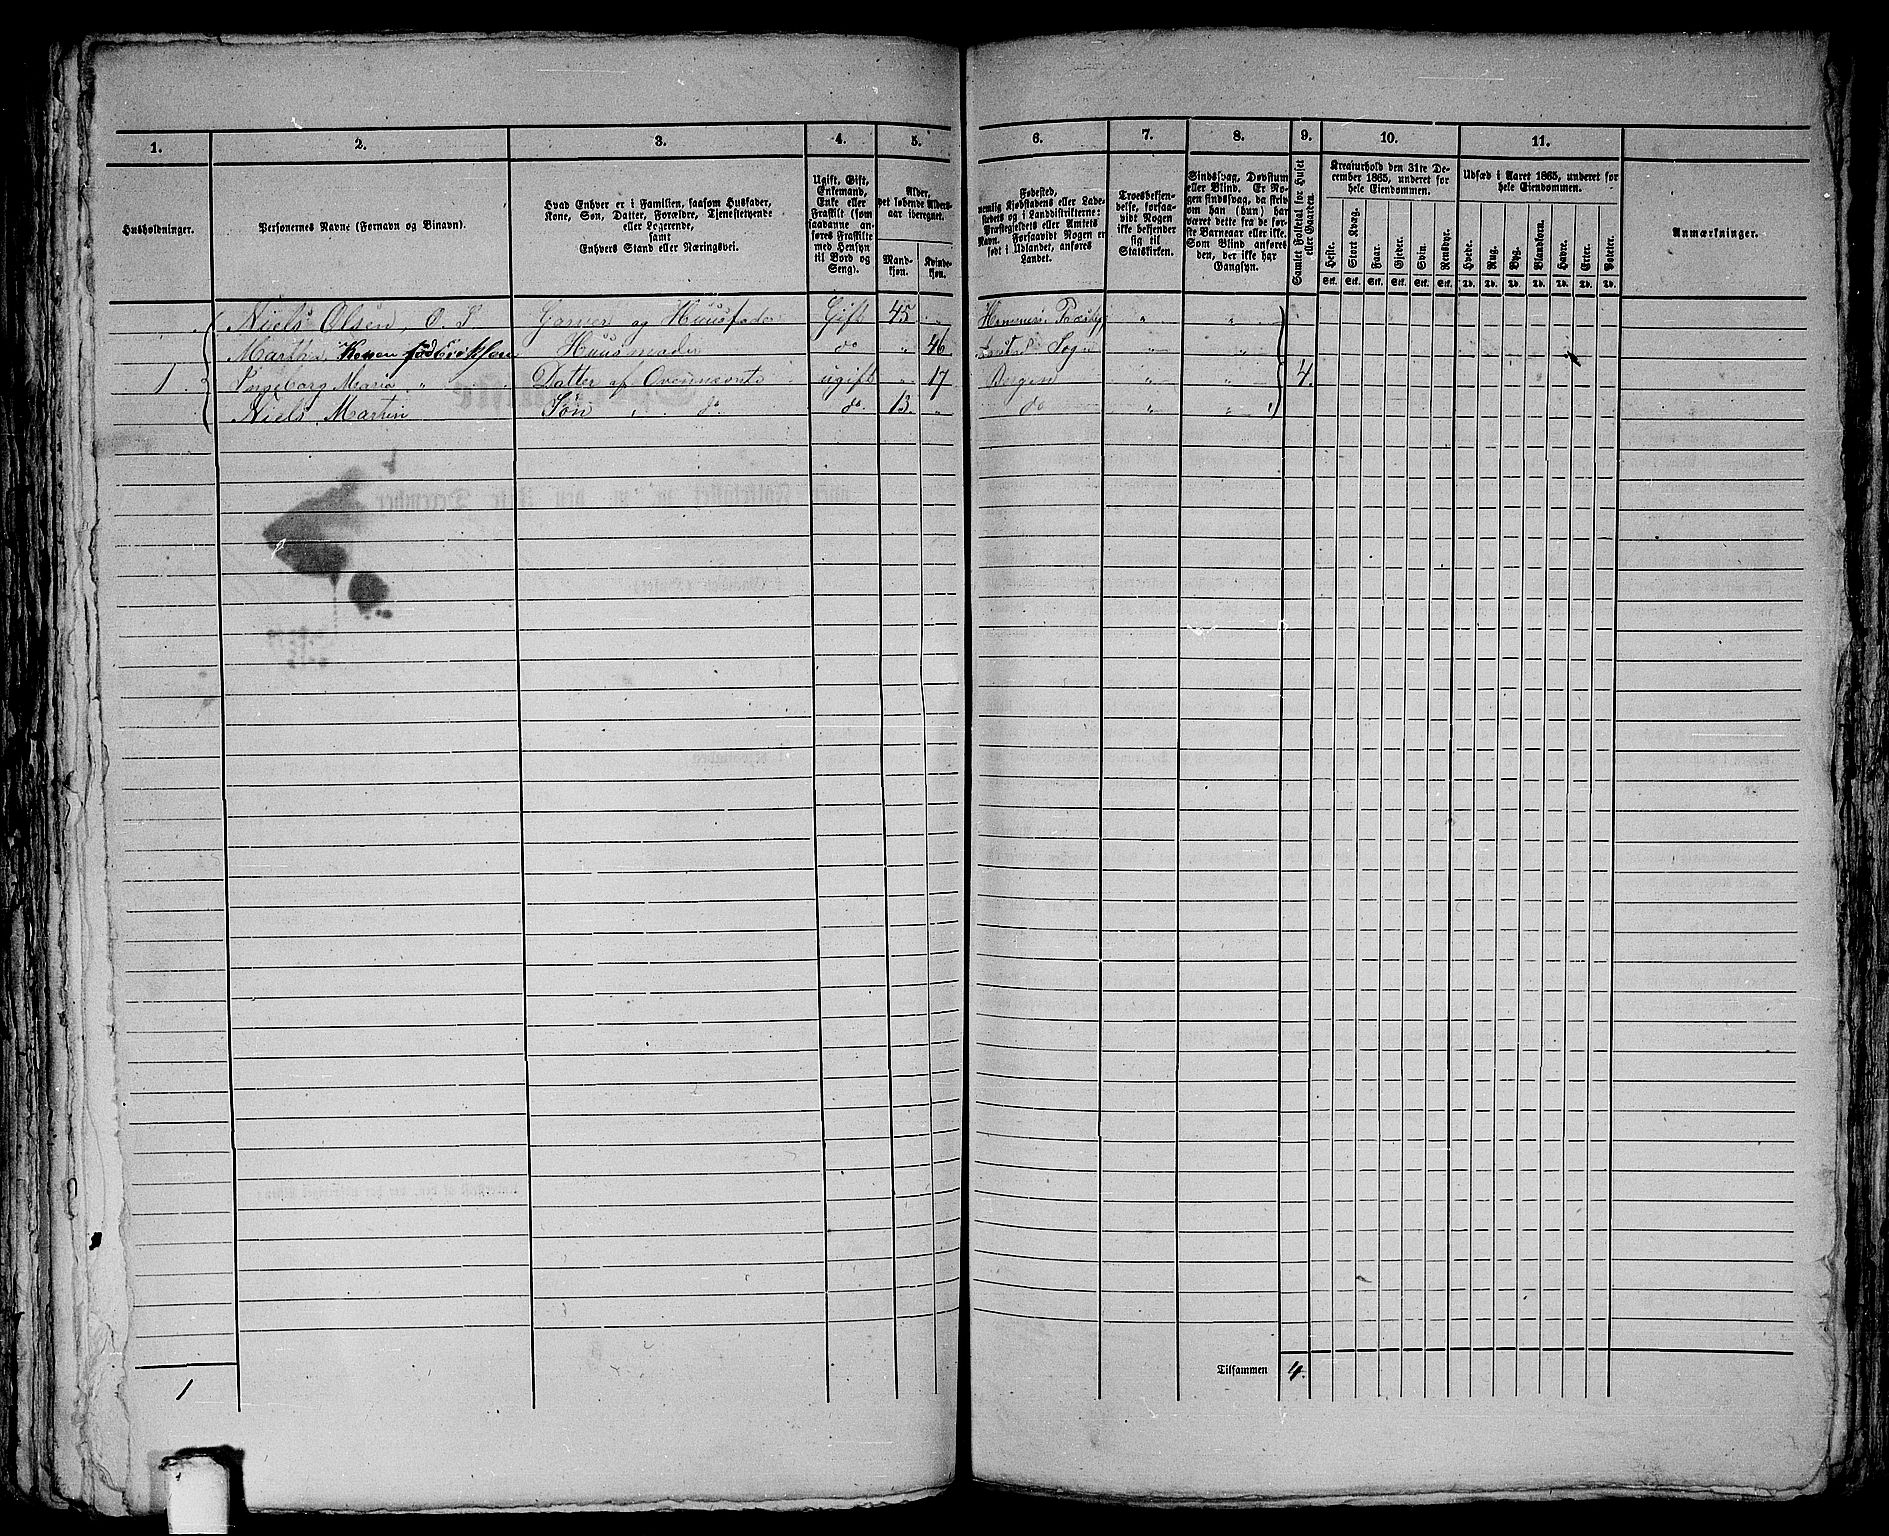 1.
2.
3.
4.
5.
6.
7.
8.
9.
10.
11.
Husholdninger.
Personernes Navne (Fornavn og Binavn).
Hvad Enhver er i Familien, saasom Husfader,
Kone, Søn, Datter, Forældre, Tjenestetyende
eller Logerende,
samt
Enhvers Stand eller Næringsvei.
Ugift, Gift,
Enkemand,
Enke eller
Fraskilt (som
saadanne an-
føres Fraskilte
med Hensyn
til Bord og
Seng).
Alder,
det løbende Alders-
aar iberegnet.
Mand-
kjøn.
Kvinde-
kjøn.
Fødested,
nemlig Kjøbstadens eller Lade-
stedets og i Landdistrikterne:
Præstegjeldets eller Amtets
Navn. Forsaavidt Nogen er
født i Udlandet, anføres
Landet.
Troesbekjen-
delse, forsaa-
vidt Nogen
ikke bekjender
sig til
Statskirken.
Sindssvag, Døvstum
eller Blind. Er No-
gen sindssvag, da skrives
om han (hun) har
været dette fra de før-
ste Barneaar eller ikke.
Som Blind anføres
den, der ikke har
Gangsyn.
Samlet Folketal for Huset
eller Gaarden.
Kreaturhold den 31te De-
cember 1865, underet for
hele Eiendommen.
Heste.
Stort Kvæg.
Faar.
Gjeder.
Svin.
Rensdyr.
Stk. Stk. Stk. Stk. Stk. Stk.
Udsæd i Aaret 1865, underet for
hele Eiendommen.
Hvede.
Rug.
Byg.
Blandkorn.
Havre.
Erter.
Poteter.
Td. Td. Td. Td. Td. Td. Td.
Anmærkninger.
Niels Olsen, Garver og Huusfader Gift 45 " "
Marthe Konen Huusmoder do " 46 Sogn " "
1. Ingeborg Maria " Datter af Ovennævnte ugift " 17 Bergen " " 4.
Niels Martin Søn " do do. 13. " do " "
1
Tilsammen 4.